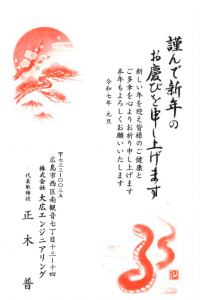 謹んで新年の
お慶びを申し上げます
新しい年を迎え皆様のご健康と
ご多幸を心よりお祈り申し上げます
本年もよろしくお願いいたします
令和七年 元旦
〒七三三-〇〇三五
広島市西区南観音七丁目十三-十四
株式会社 大広エンジニアリング
代表取締役 正木 普